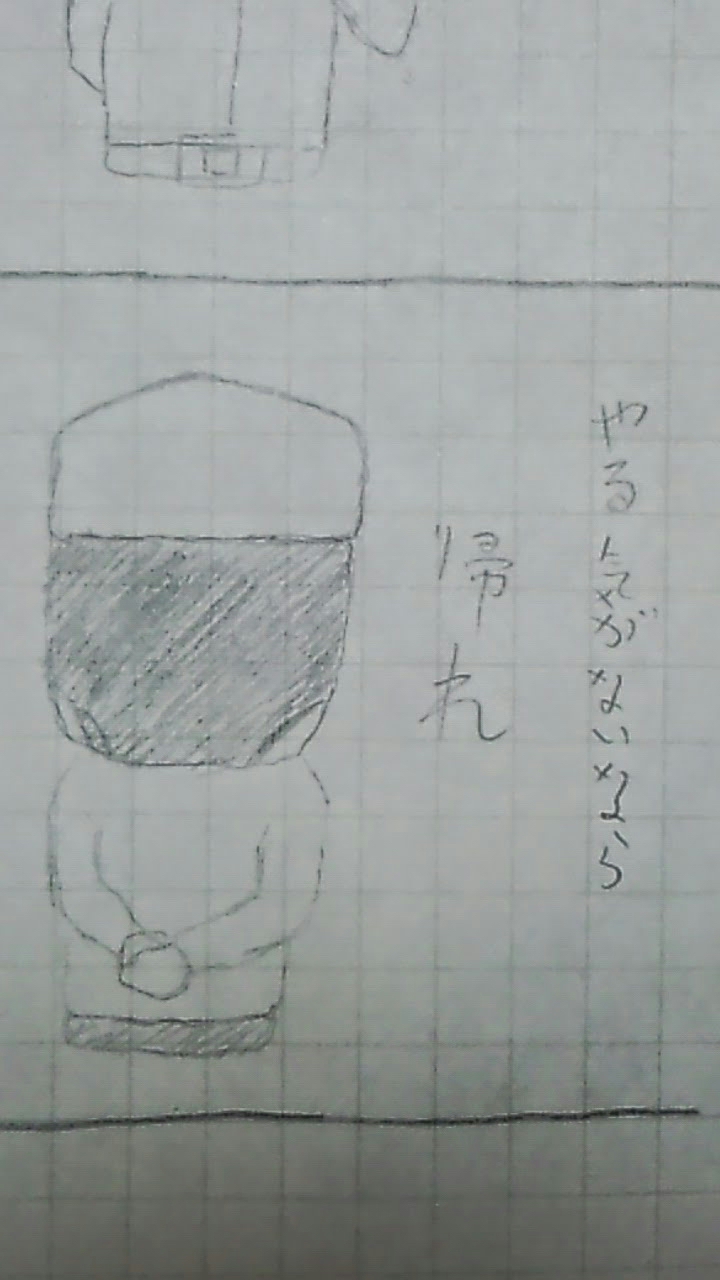 やる気がないなら
帰れ